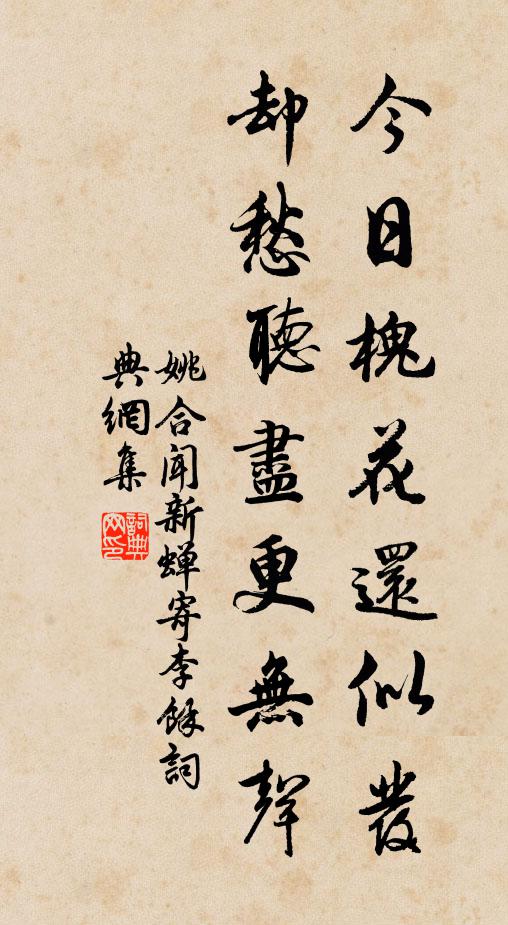 今日槐花還似發
却愁聽盡更無聲
姚合聞新蟬寄李餘詞
典網集
詞典網印